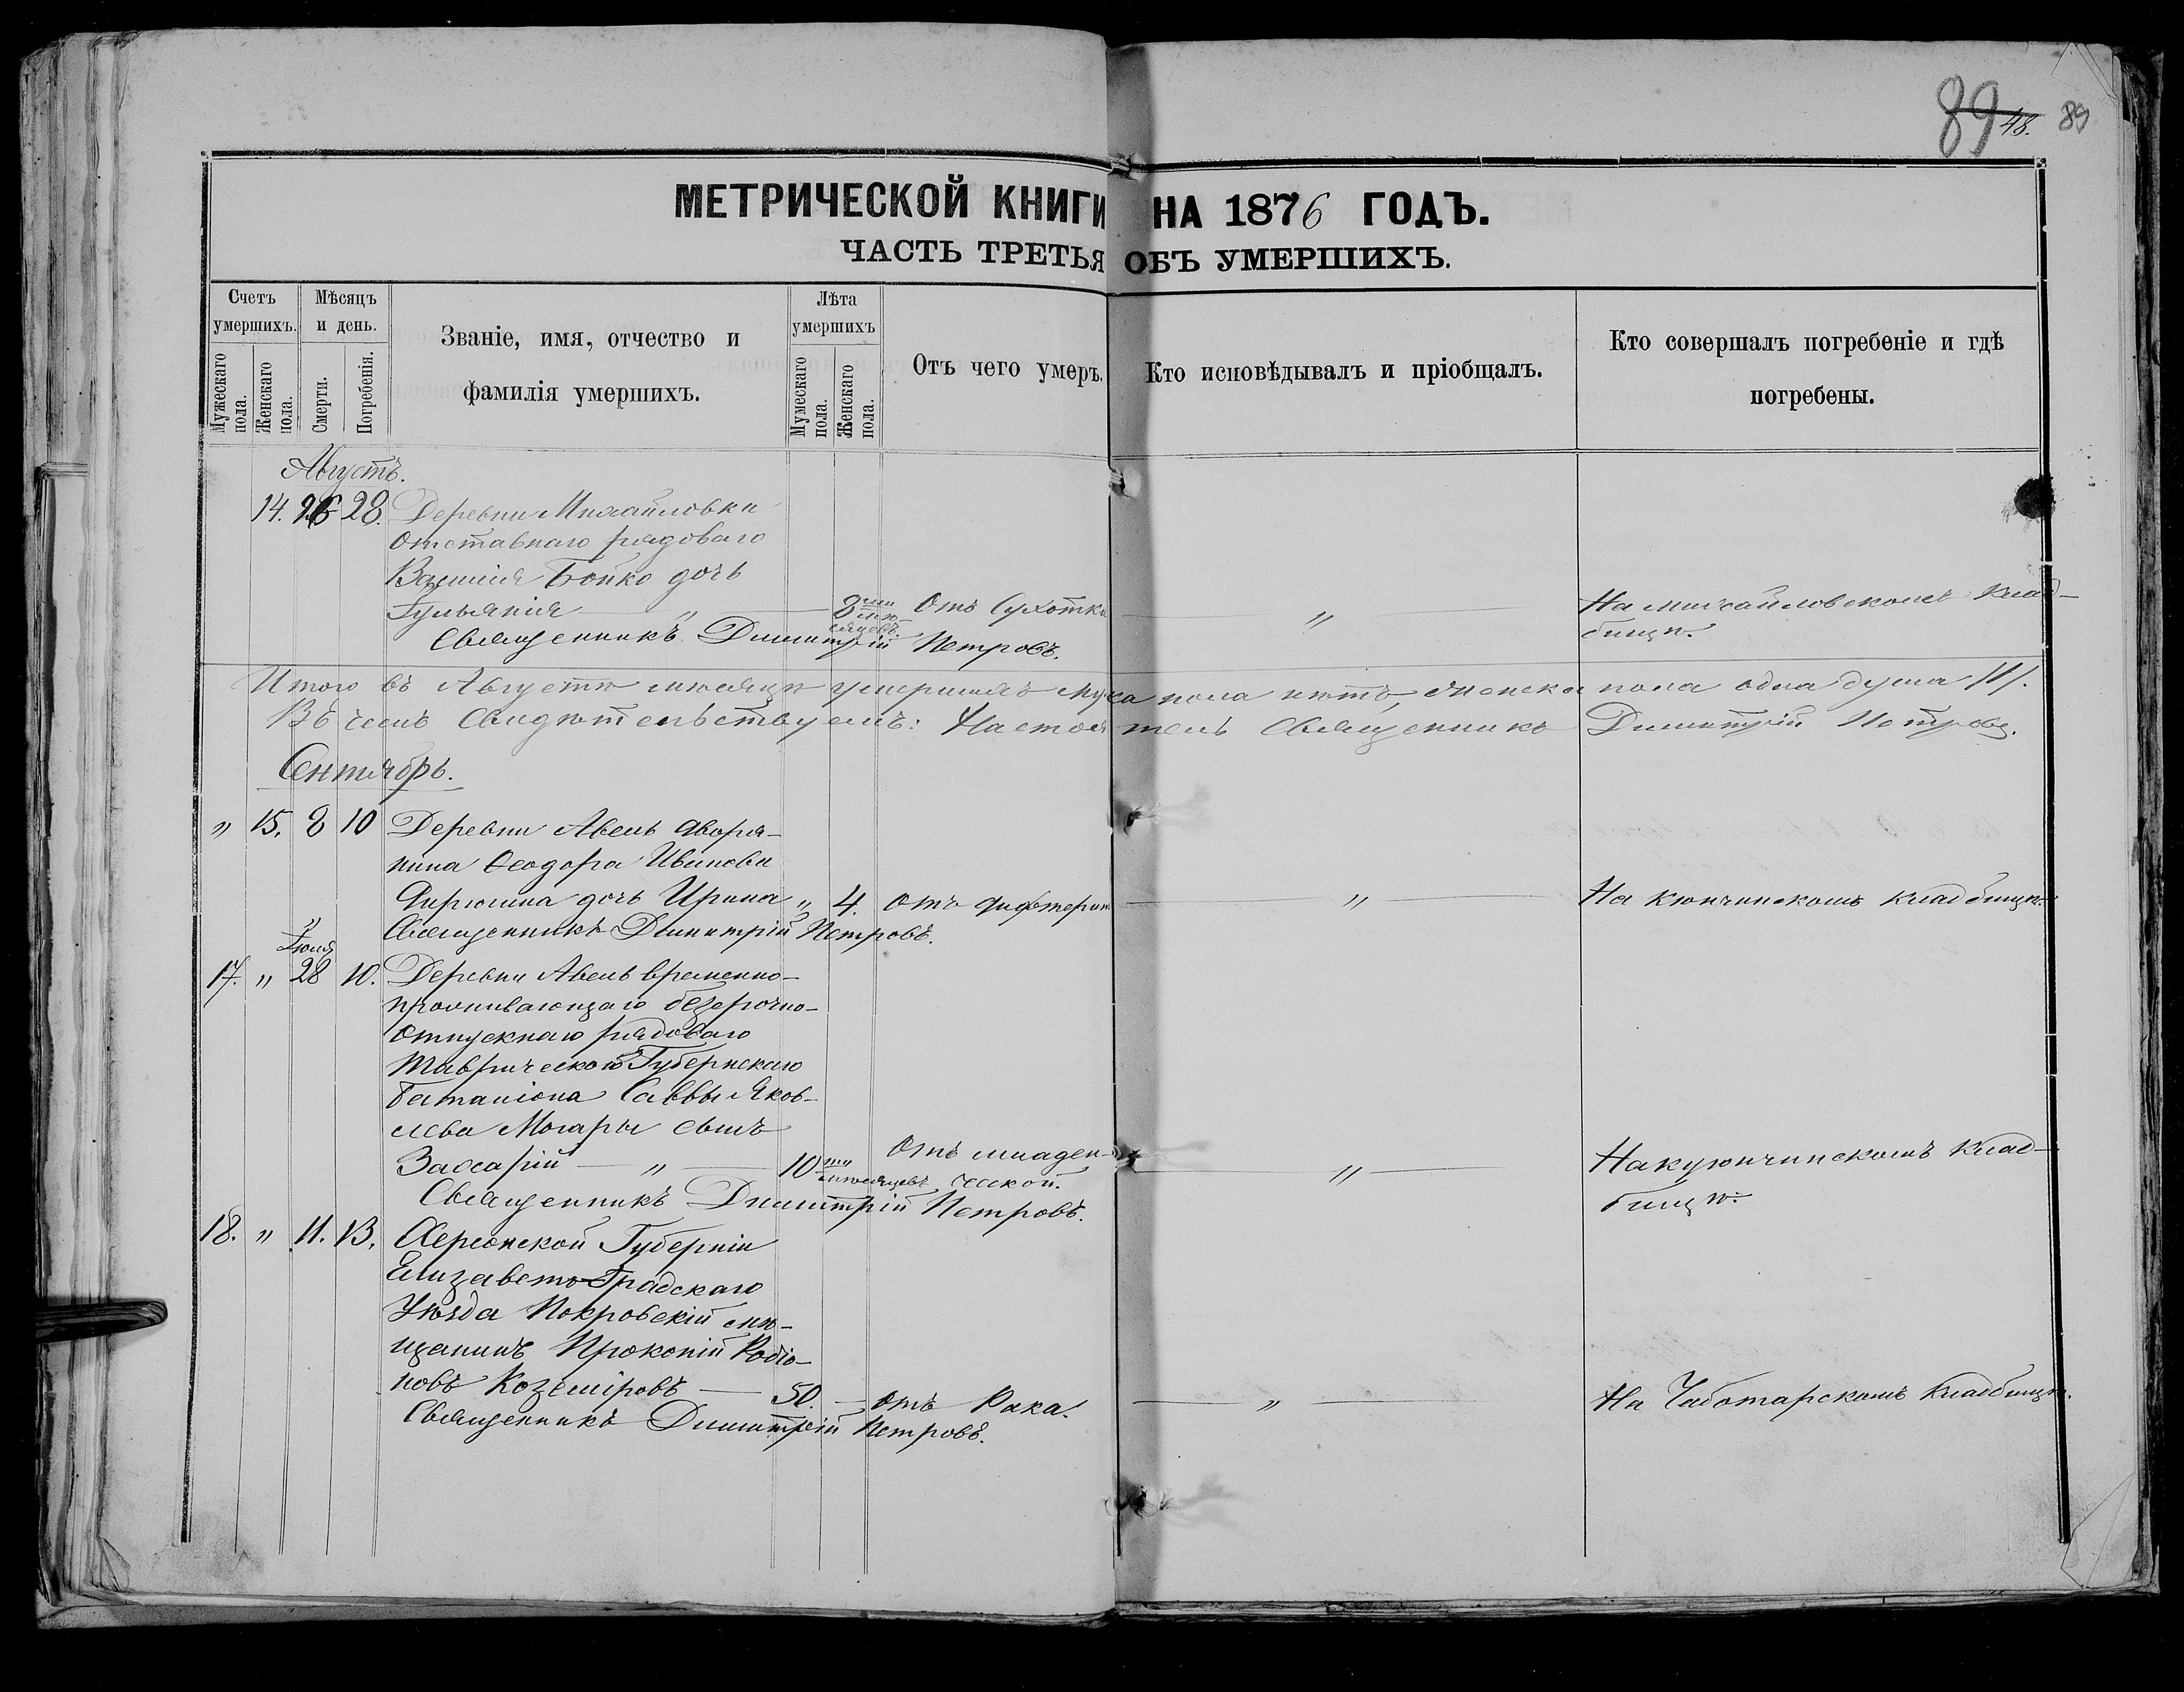 89 48. 89
МЕТРИЧЕСКОЙ КНИГИ НА 1876 ГОДЪ.
ЧАСТЬ ТРЕТЬЯ ОБЪ УМЕРШИХЪ.
Счетъ умершихъ.
Мужескаго пола.
Женскаго пола.
Мѣсяцъ и день.
Смерти.
Погребенія.
Званіе, имя, отчество и
фамилія умершихъ.
Лѣта умершихъ
Мужескаго пола.
Женскаго пола.
Отъ чего умеръ.
Кто исповѣдывалъ и пріобщалъ.
Кто совершалъ погребеніе и гдѣ
погребены.
Августъ.
14. 26 28. Деревни Михайловки
отставнаго рядоваго
Василія Бойко дочь
Гульянія — „ — 8ми мѣсяцовъ. Отъ Сухотки — „ — На михайловскомъ клад-
бищѣ.
Священникъ Димитрій Петровъ.
Итого въ Августѣ мѣсяцѣ умершихъ муска пола нѣтъ, женска пола одна душа /1/.
Въ чемъ свидѣтельствуемъ: Настоятель Священникъ Димитрій Петровъ.
Сентябрь.
„ 15. 8 10 Деревни Авель дворя-
нина Ѳеодора Иванова
дочь Ирина „ 4. отъ дифтерит — „ — На кюнчинскомъ кладбищѣ.
Священникъ Димитрій Петровъ.
„
Іюля
17. „ 28 10. Деревни Авель временно-
проживающаго безсрочно-
отпускнаго рядоваго
Таврическаго Губернскаго
баталіона Саввы Яков-
лева Могары сынъ
Захарій — „ — 10ти мѣсяцевъ Отъ младен-
ческой. — „ — На куюнчинскомъ клад-
бищѣ.
Священникъ Димитрій Петровъ.
18. „ 11. 13. Херсонской Губерніи
Елизаветъ-Градскаго
Уѣзда Покровскій мѣ-
щанинъ Прокопій Родіо-
новъ Коземіровъ — 50. — отъ Рака. — „ — На Чаботарскомъ кладбищѣ.
Священникъ Димитрій Петровъ.